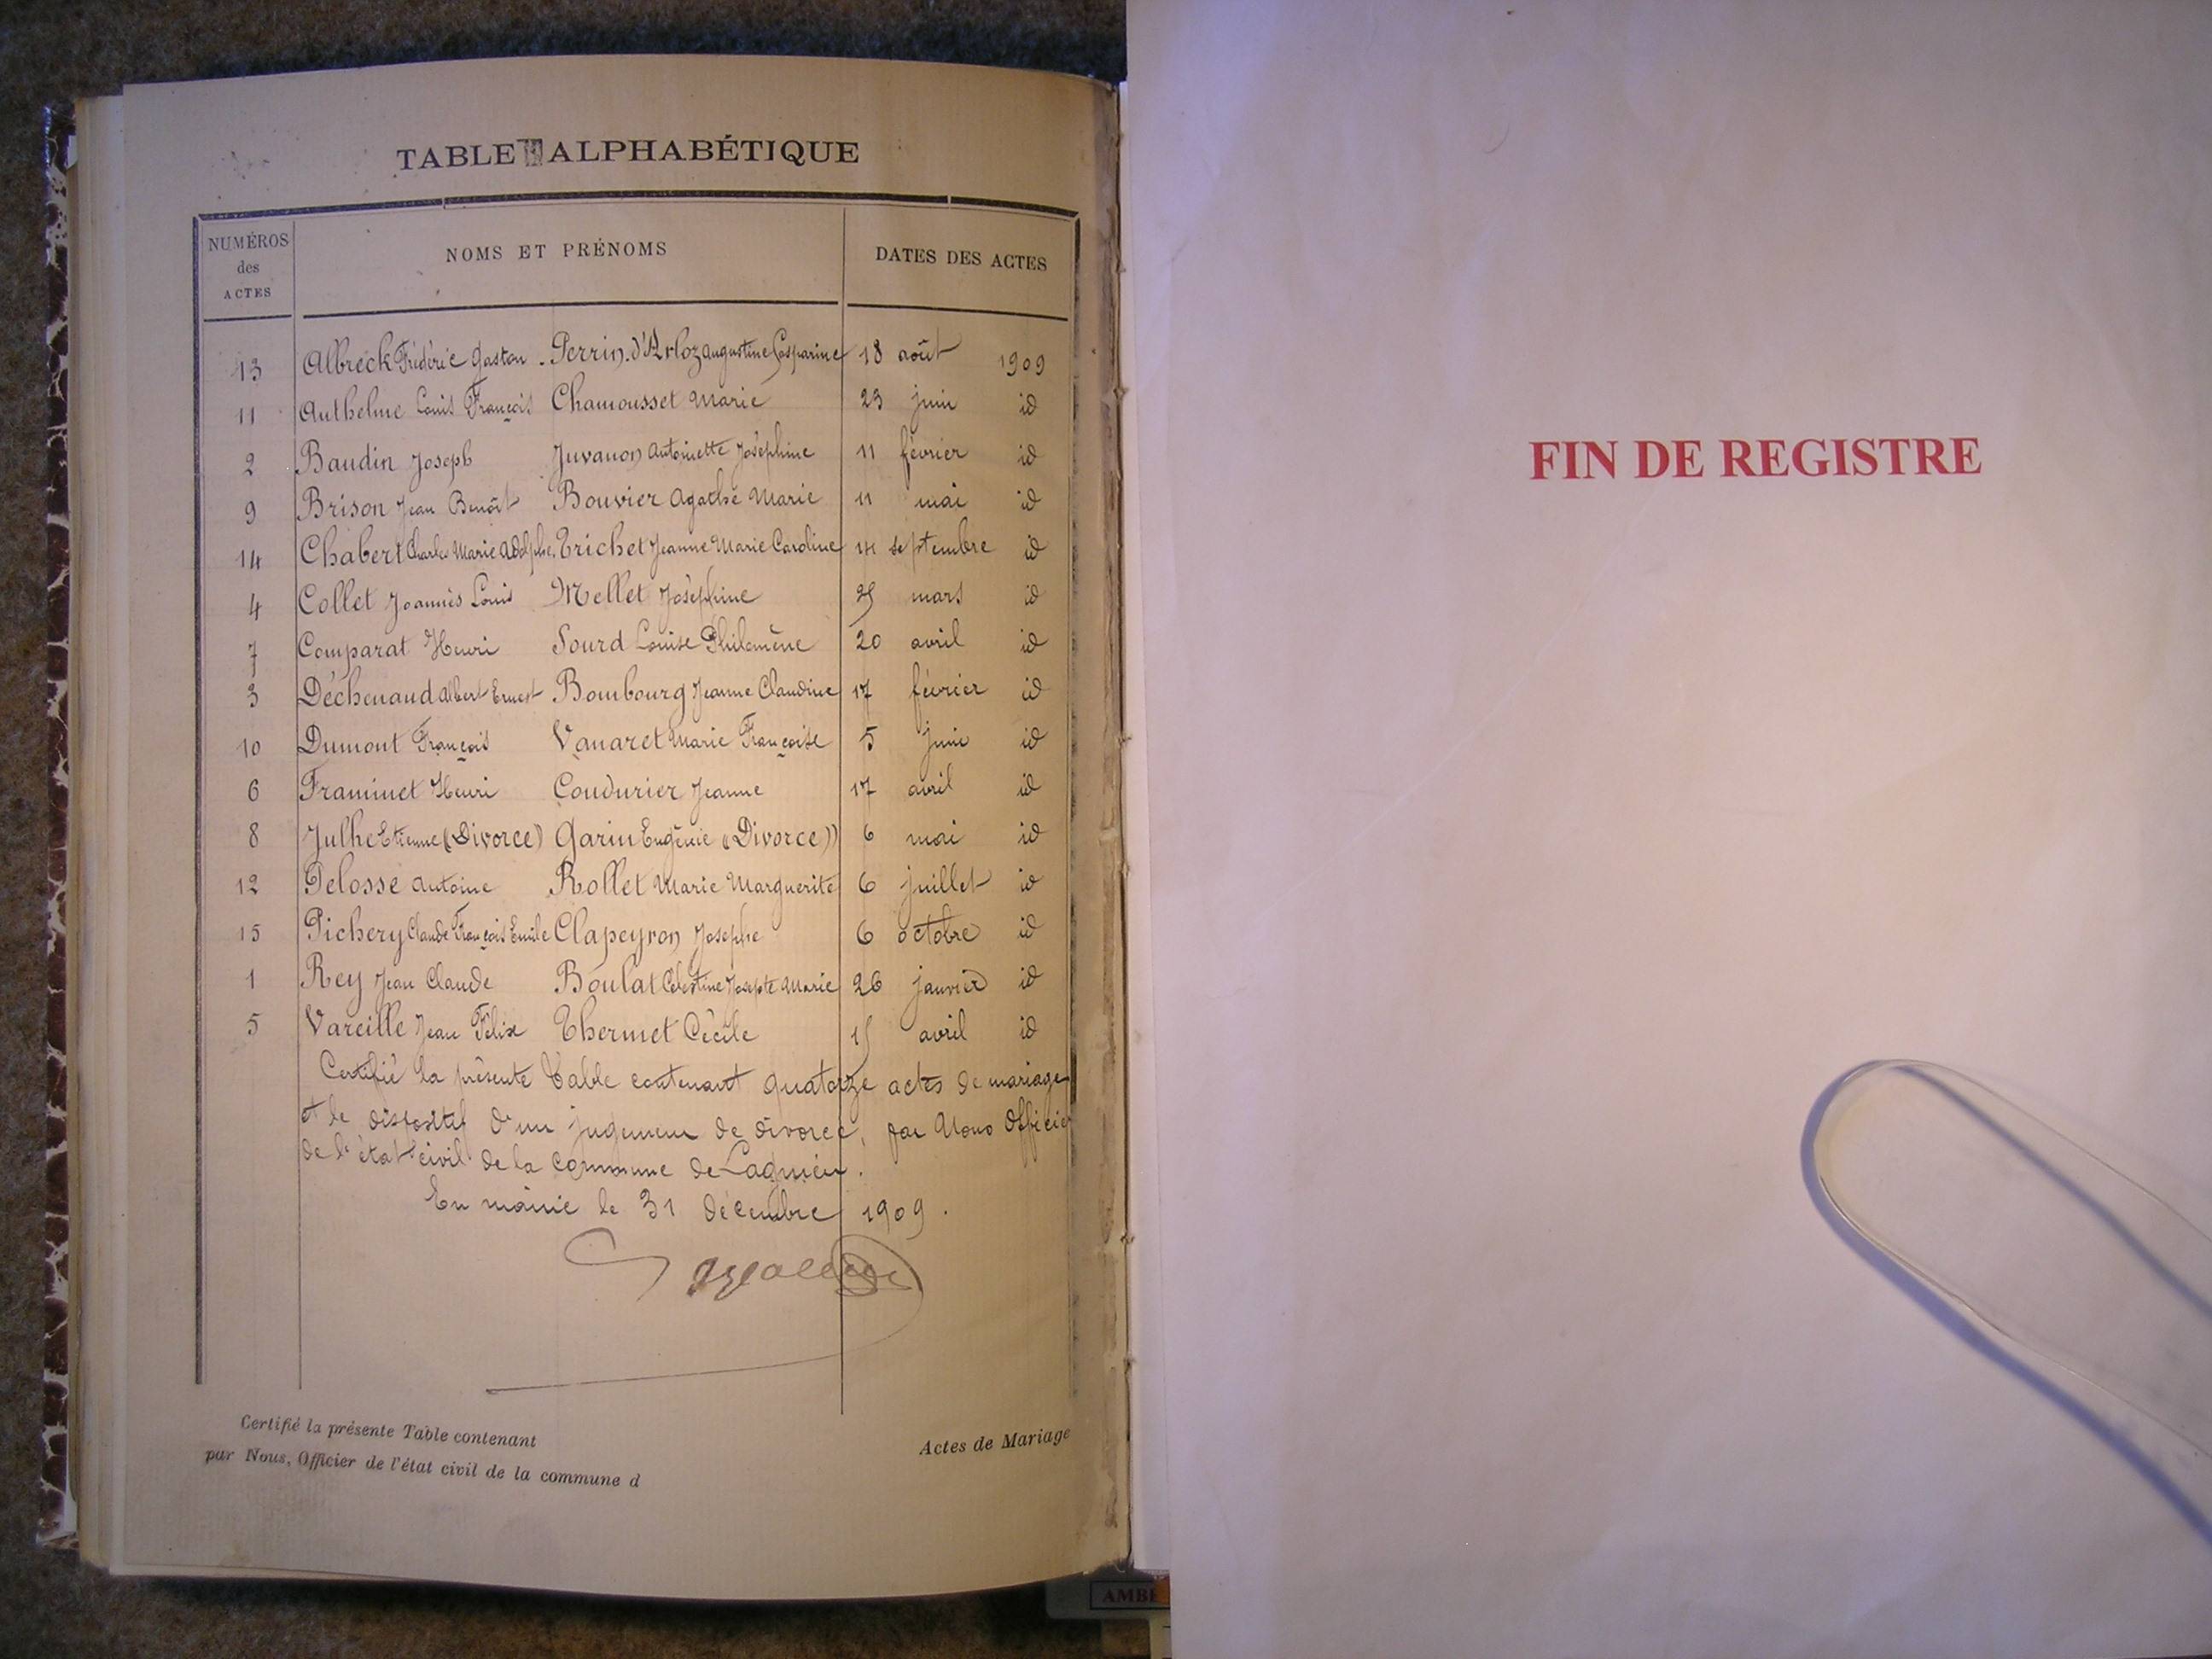 TABLE ALPHABÉTIQUE
NUMÉROS des ACTES NOMS ET PRÉNOMS DATES DES ACTES
13 Albreck Frédéric Gaston . Perrin . d'Arloz Augustine Gasparine 18 août 1909
11 Authelme Louis François Chamousset Marie 23 juin id
2 Baudin Joseph Juvanon Antoinette Joséphine 11 février id
9 Brison Jean Benoît Bouvier Agathe Marie 11 mai id
14 Chabert Charles Marie Adolphe, Trichet Jeanne Marie Caroline 14 septembre id
4 Collet Joannès Louis Mellet Joséphine 25 mars id
7 Comparat Henri Sourd Louise Philomène 20 avril id
3 Déchenaud Albert Ernest Bombourg Jeanne Claudine 17 février id
10 Dumont François Vanaret Marie Françoise 5 juin id
6 Framinet Henri Coudurier Jeanne 17 avril id
8 Julhe Etienne (Divorce) Garin Eugénie (Divorce) 6 mai id
12 Pelosse Antoine Rollet Marie Marguerite 6 juillet id
15 Pichery Claude François Emile Clapeyron Josephe 6 octobre id
1 Rey Jean Claude Boulat Célestine Josephte Marie 26 janvier id
5 Vareille Jean Félix Thermet Cécile 15 avril id
Certifié la présente Table contenant quatorze actes de mariage
et le dispositif d'un jugement de divorce, par Nous Officier
de l'état civil de la commune de Lagnieu.
En mairie le 31 décembre 1909.
Certifié la présente Table contenant Actes de Mariage
par Nous, Officier de l'état civil de la commune d
FIN DE REGISTRE
AMBE